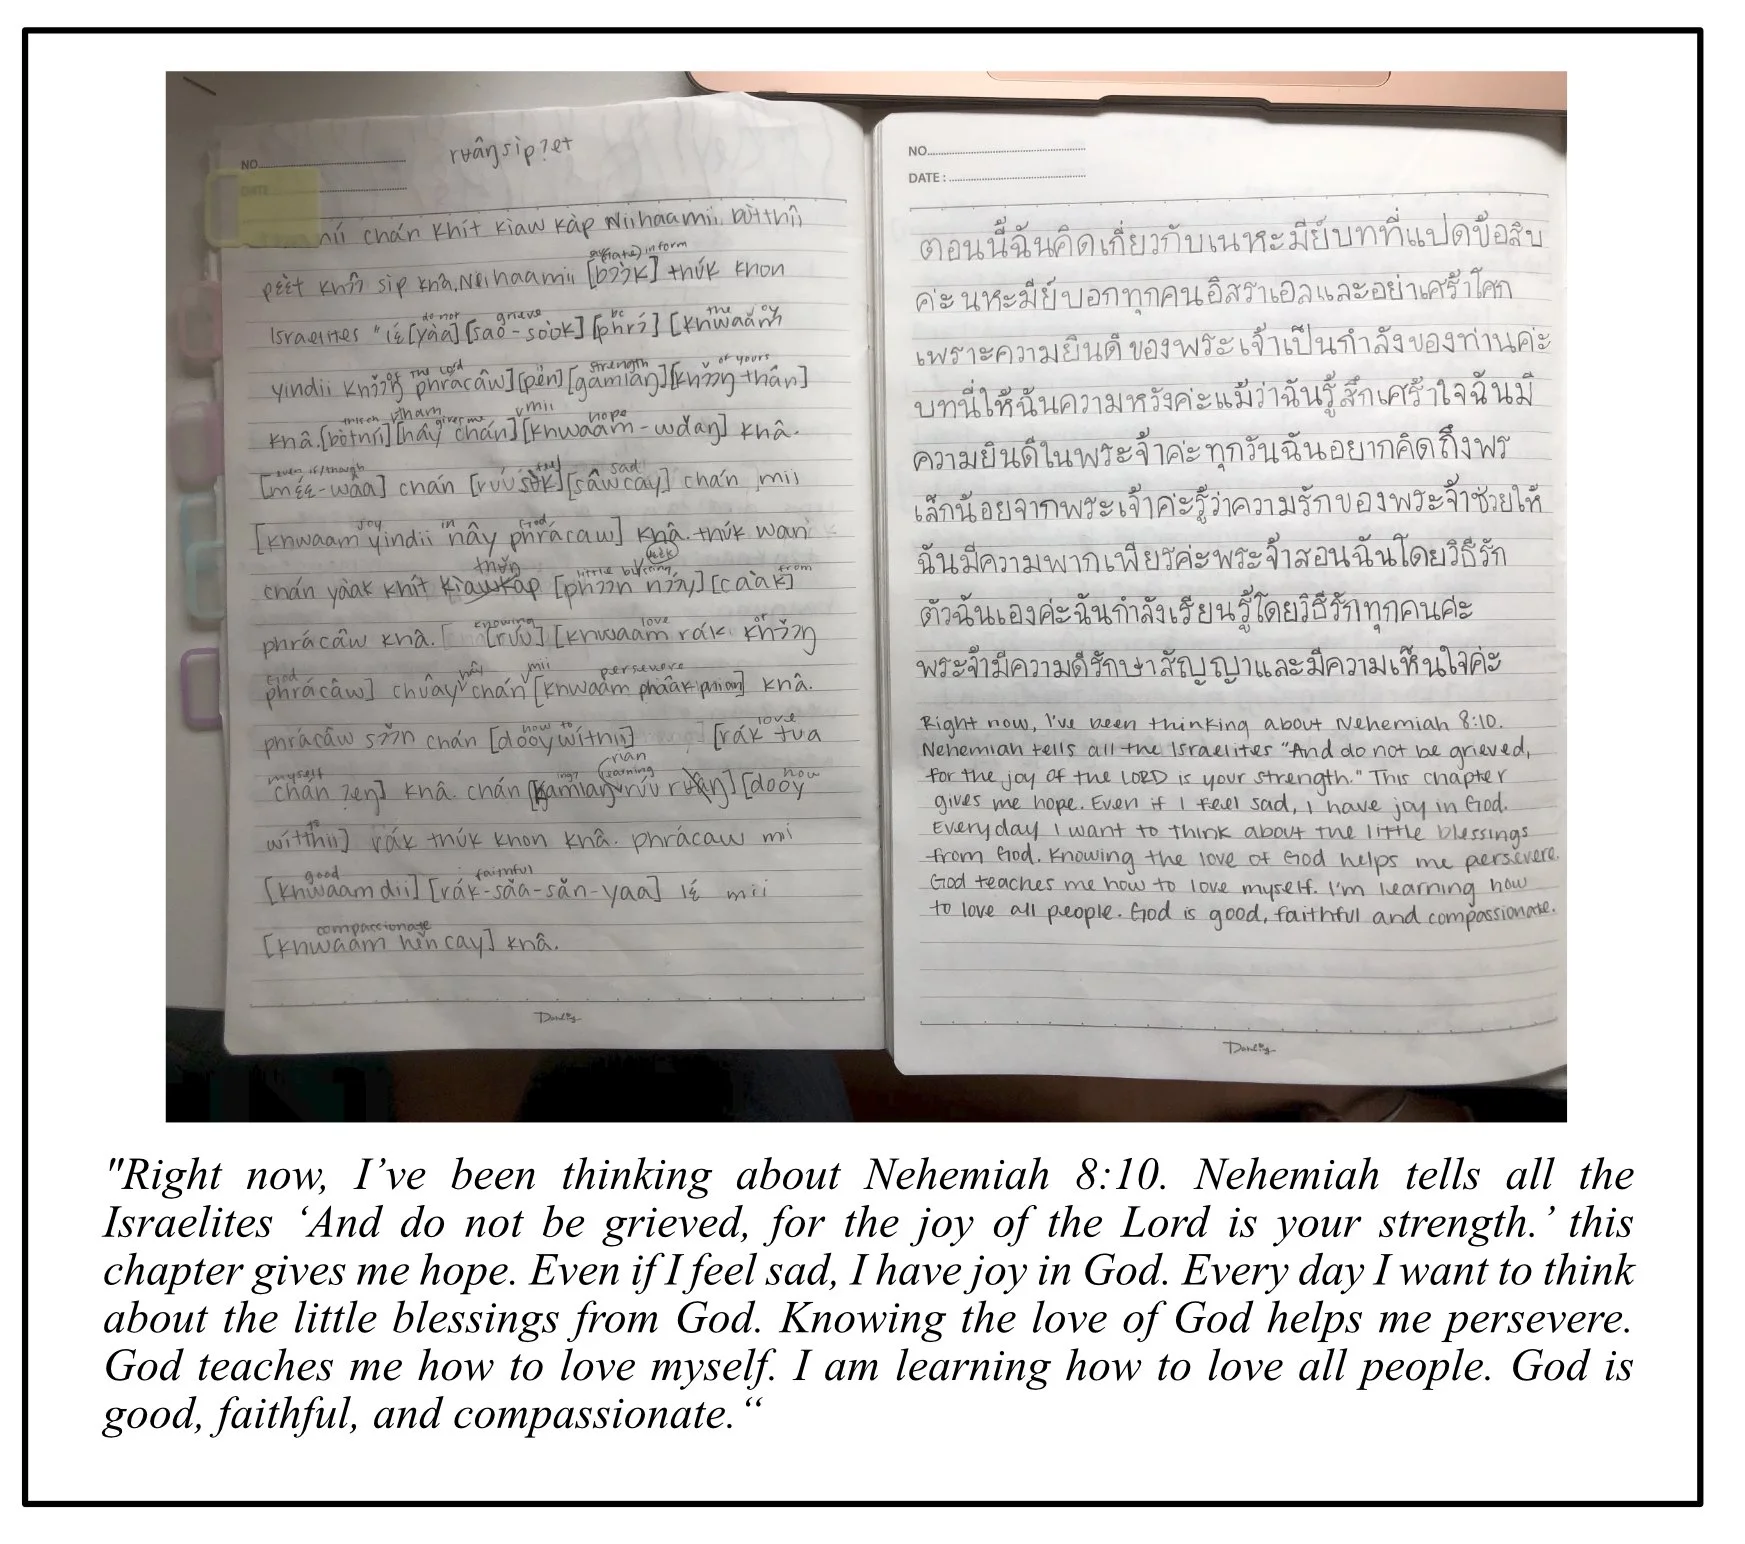 NO.
DATE
rʉâŋ sìp ʔèt
níi chán khít kìaw kàp Niihaamii bòtthîi
pɛ̀ɛt khɔ̂ɔ sìp khâ. Neihaamii [bɔ̀ɔk] thúk khon
inform
Israelites "lɛ́ [yàa] [sâo-sòok] [phrɔ́] [khwaam
do not grieve bc the joy
yindii khɔ̌ɔŋ phrácâw] [pen] [gamlaŋ] [khɔ̌ɔŋ thân]
of the Lord strength of yours
khâ. [bòtníi] [hây chán] [khwaam-wǎŋ] khâ.
gives me mii hope
[mɛ́ɛ-wâa] chán [rúu sʉ̀k] [sâwcay] chán mii
even if/though feel sad
[khwaam yindii nây phrácaw] khâ. thúk wan
joy in God
chán yàak khít kìaw kàp [phɔɔn nɔ́ɔy] [càak]
thʉ̌ŋ little blessing from
phrácâw khâ. [rúu] [khwaam rák khɔ̌ɔŋ
knowing love of
phrácâw] chûay chán [khwaam phâakphian] khâ.
God hây mii persevere
phrácâw sɔ̌ɔn chán [dooywíthii] [rák tua
how to love
chán ʔeŋ] khâ. chán [gamlaŋ rúu] [dooy
myself rian learning how
wítthii] rák thúk khon khâ. phrácaw mi
to
[khwaam dii] [rák-sǎa-sǎn-yaa] lɛ́ mii
good faithful
[khwaam hěn cay] khâ.
compassionate
NO.
DATE :
ตอนนี้ฉันคิดเกี่ยวกับเนหะมีย์บทที่แปดข้อสิบ
ค่ะ นหะมีย์บอกทุกคนอิสราเอลและอย่าเศร้าโศก
เพราะความยินดีของพระเจ้าเป็นกำลังของท่านค่ะ
บทนี่ให้ฉันความหวังค่ะแม้ว่าฉันรู้สึกเศร้าใจฉันมี
ความยินดีในพระจ้าค่ะทุกวันฉันอยากคิดถึงพร
เล็กน้อยจากพระเจ้าค่ะรู้ว่าความรักของพระจ้าช่วยให้
ฉันมีความพากเพียรค่ะพระจ้าสอนฉันโดยวิธีรัก
ตัวฉันเองค่ะฉันกำลังเรียนรู้โดยวิธีรักทุกคนค่ะ
พระจ้ามีความดีรักษาสัญญาและมีความเห็นใจค่ะ
Right now, I've been thinking about Nehemiah 8:10.
Nehemiah tells all the Israelites "And do not be grieved,
for the joy of the LORD is your strength." This chapter
gives me hope. Even if I feel sad, I have joy in God.
Everyday I want to think about the little blessings
from God. Knowing the love of God helps me persevere.
God teaches me how to love myself. I'm learning how
to love all people. God is good, faithful and compassionate.
"Right now, I’ve been thinking about Nehemiah 8:10. Nehemiah tells all the
Israelites ‘And do not be grieved, for the joy of the Lord is your strength.’ this
chapter gives me hope. Even if I feel sad, I have joy in God. Every day I want to think
about the little blessings from God. Knowing the love of God helps me persevere.
God teaches me how to love myself. I am learning how to love all people. God is
good, faithful, and compassionate.“